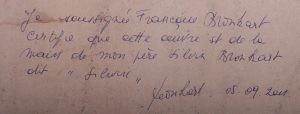 Je soussigné François Bronkart
certifie que cette œuvre est de la
main de mon père Silvin Bronkart
dit " Silvin "
Bronkart. 05.09.2011